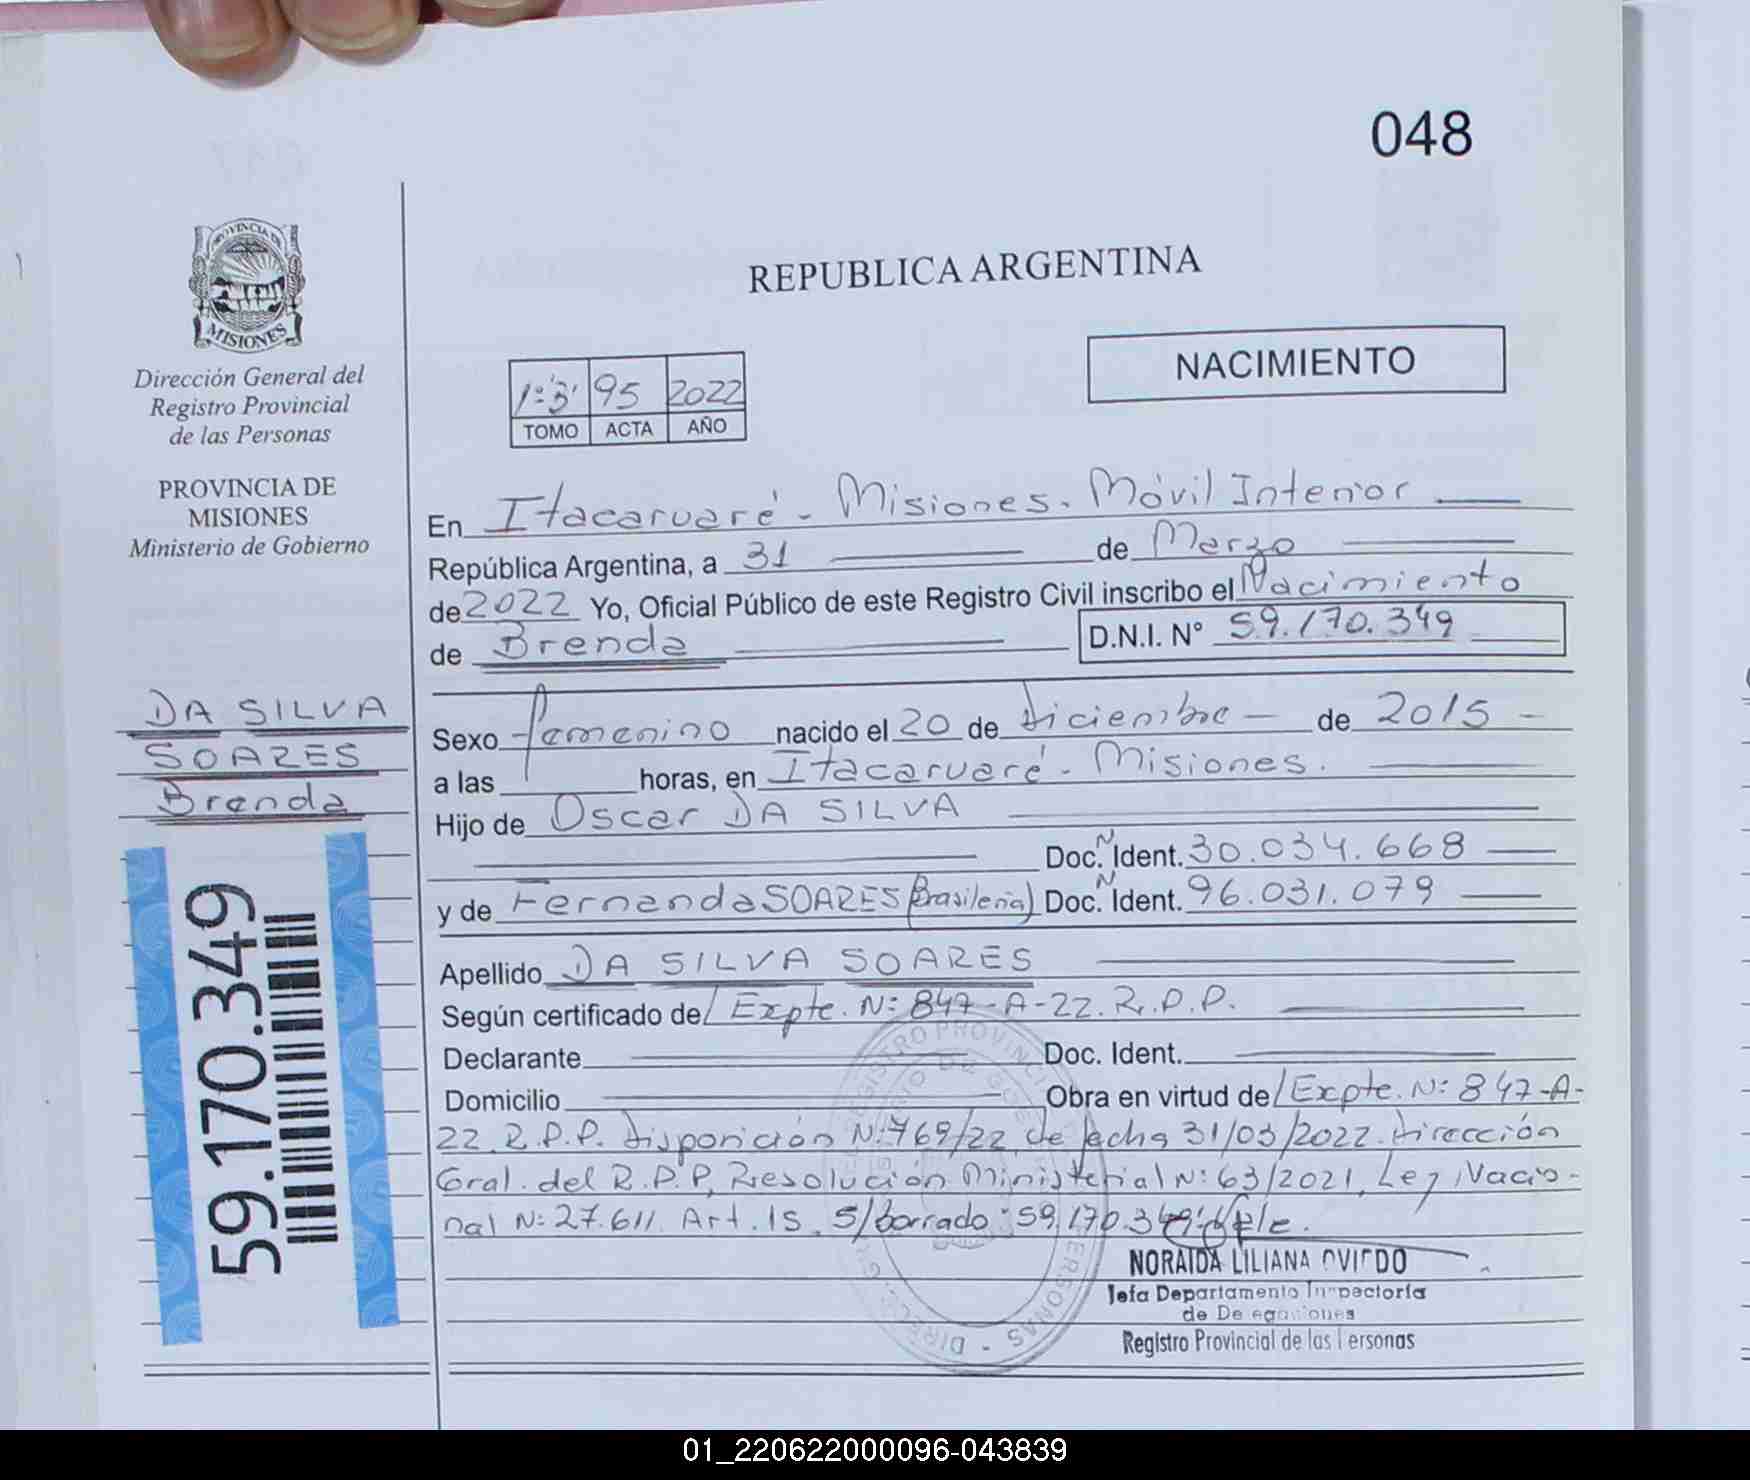 048
PROVINCIA DE
MISIONES
Dirección General del
Registro Provincial
de las Personas
PROVINCIA DE
MISIONES
Ministerio de Gobierno
REPUBLICA ARGENTINA
NACIMIENTO
1º"3" 95 2022
TOMO ACTA AÑO
En Itacaruaré - Misiones. Móvil Interior
República Argentina, a 31 de Marzo
de 2022 Yo, Oficial Público de este Registro Civil inscribo el Nacimiento
de Brenda D.N.I. Nº 59.170.349
DA SILVA
SOARES
Brenda
Sexo femenino nacido el 20 de diciembre - de 2015 -
a las horas, en Itacaruaré - Misiones.
Hijo de Oscar DA SILVA
Doc. N Ident. 30.034.668
y de Fernanda SOARES (Brasileña) Doc. N Ident. 96.031.079
Apellido DA SILVA SOARES
Según certificado de/ Expte. Nº: 847-A-22. R.P.P.
Declarante Doc. Ident.
Domicilio Obra en virtud de/ Expte. Nº: 847-A-
22. R.P.P. disposición Nº: 769/22, de fecha 31/03/2022. dirección
Gral. del R.P.P, Resolución Ministerial Nº: 63/2021, Ley Nacio-
nal Nº: 27.611. Art. 15. S/borrado: 59.170.349:
59.170.349
NORAIDA LILIANA OVIEDO
Jefa Departamento Inspectoría
de Delegaciones
Registro Provincial de las Personas
01_220622000096-043839